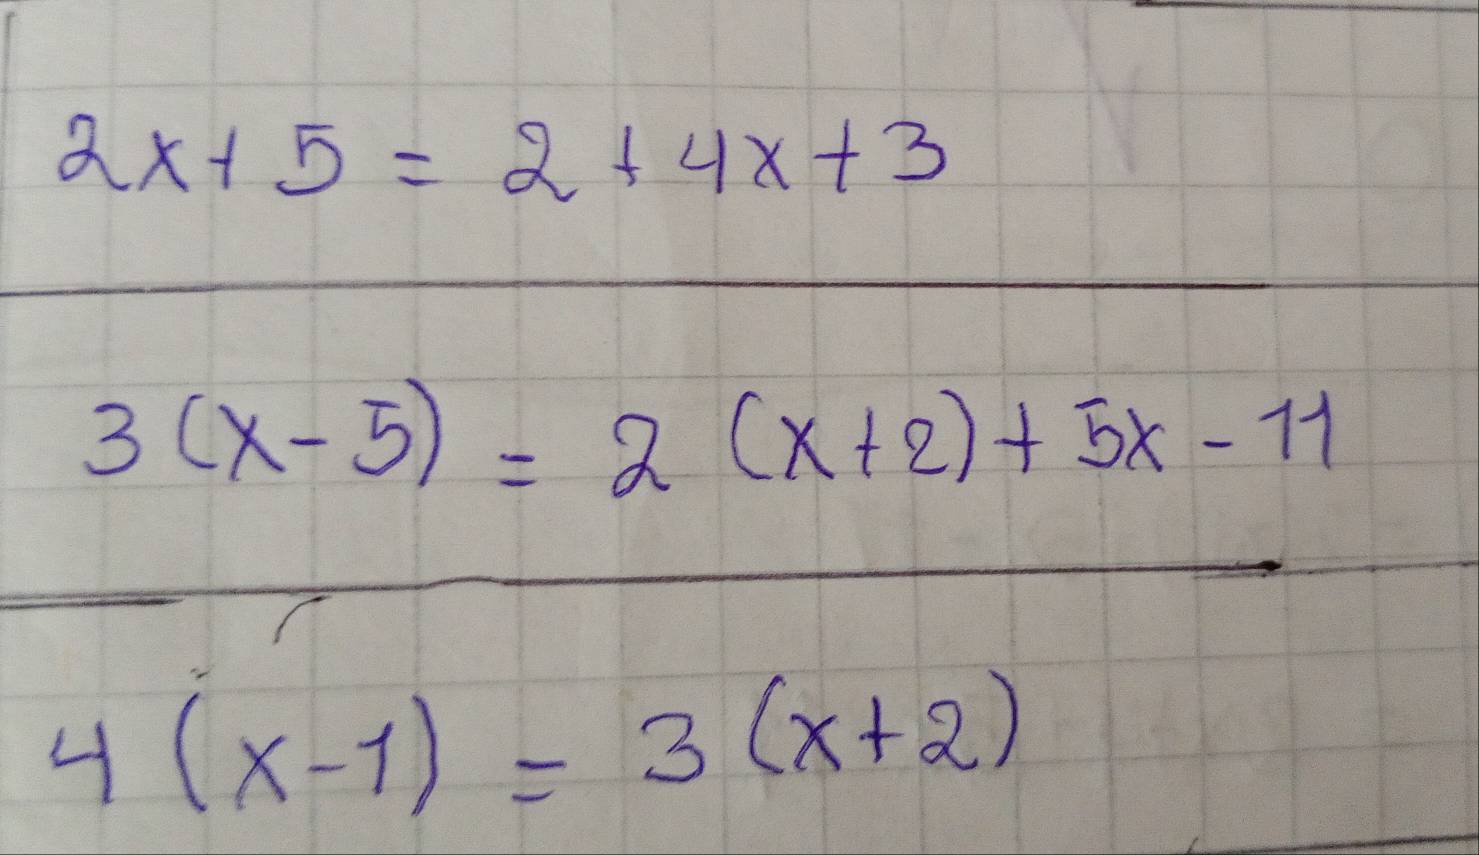 2x+5=2+4x+3
3(x-5)=2(x+2)+5x-11
4(x-1)=3(x+2)